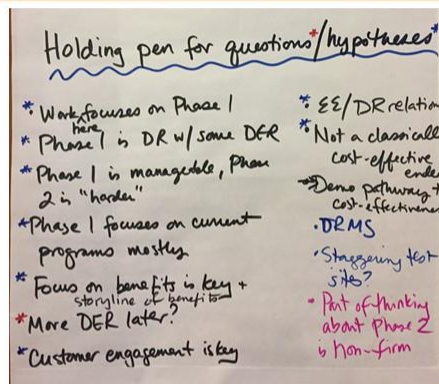 Holding pen for questions*/hypotheses*
* Work here focuses on Phase 1
* Phase 1 is DR w/ some DER
* Phase 1 is manageable, Phase
2 is "harder"
* Phase 1 focuses on current
programs mostly
* Focus on benefits is key +
storyline of benefits
* More DER later?
* Customer engagement is key
* EE/DR relation
* Not a classicall
cost-effective
ende
Demo pathway +
cost-effectivenes
• DRMS
• Staggering test
sites?
• Part of thinking
about Phase 2
is non-firm